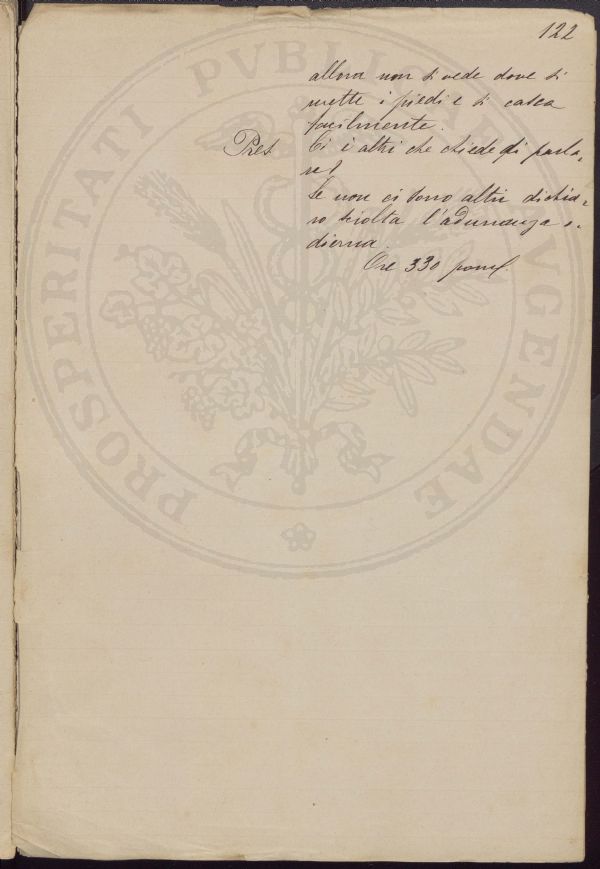 122
allora non si vede dove si
mette i piedi e si casca
facilmente.
Pres. Ci è altri che chiede di parla-
re?
Se non ci sono altri dichia-
ro sciolta l'adunanza o-
dierna.
Ore 330 pom.
PROSPERITATI PVBLICAE AVGENDAE